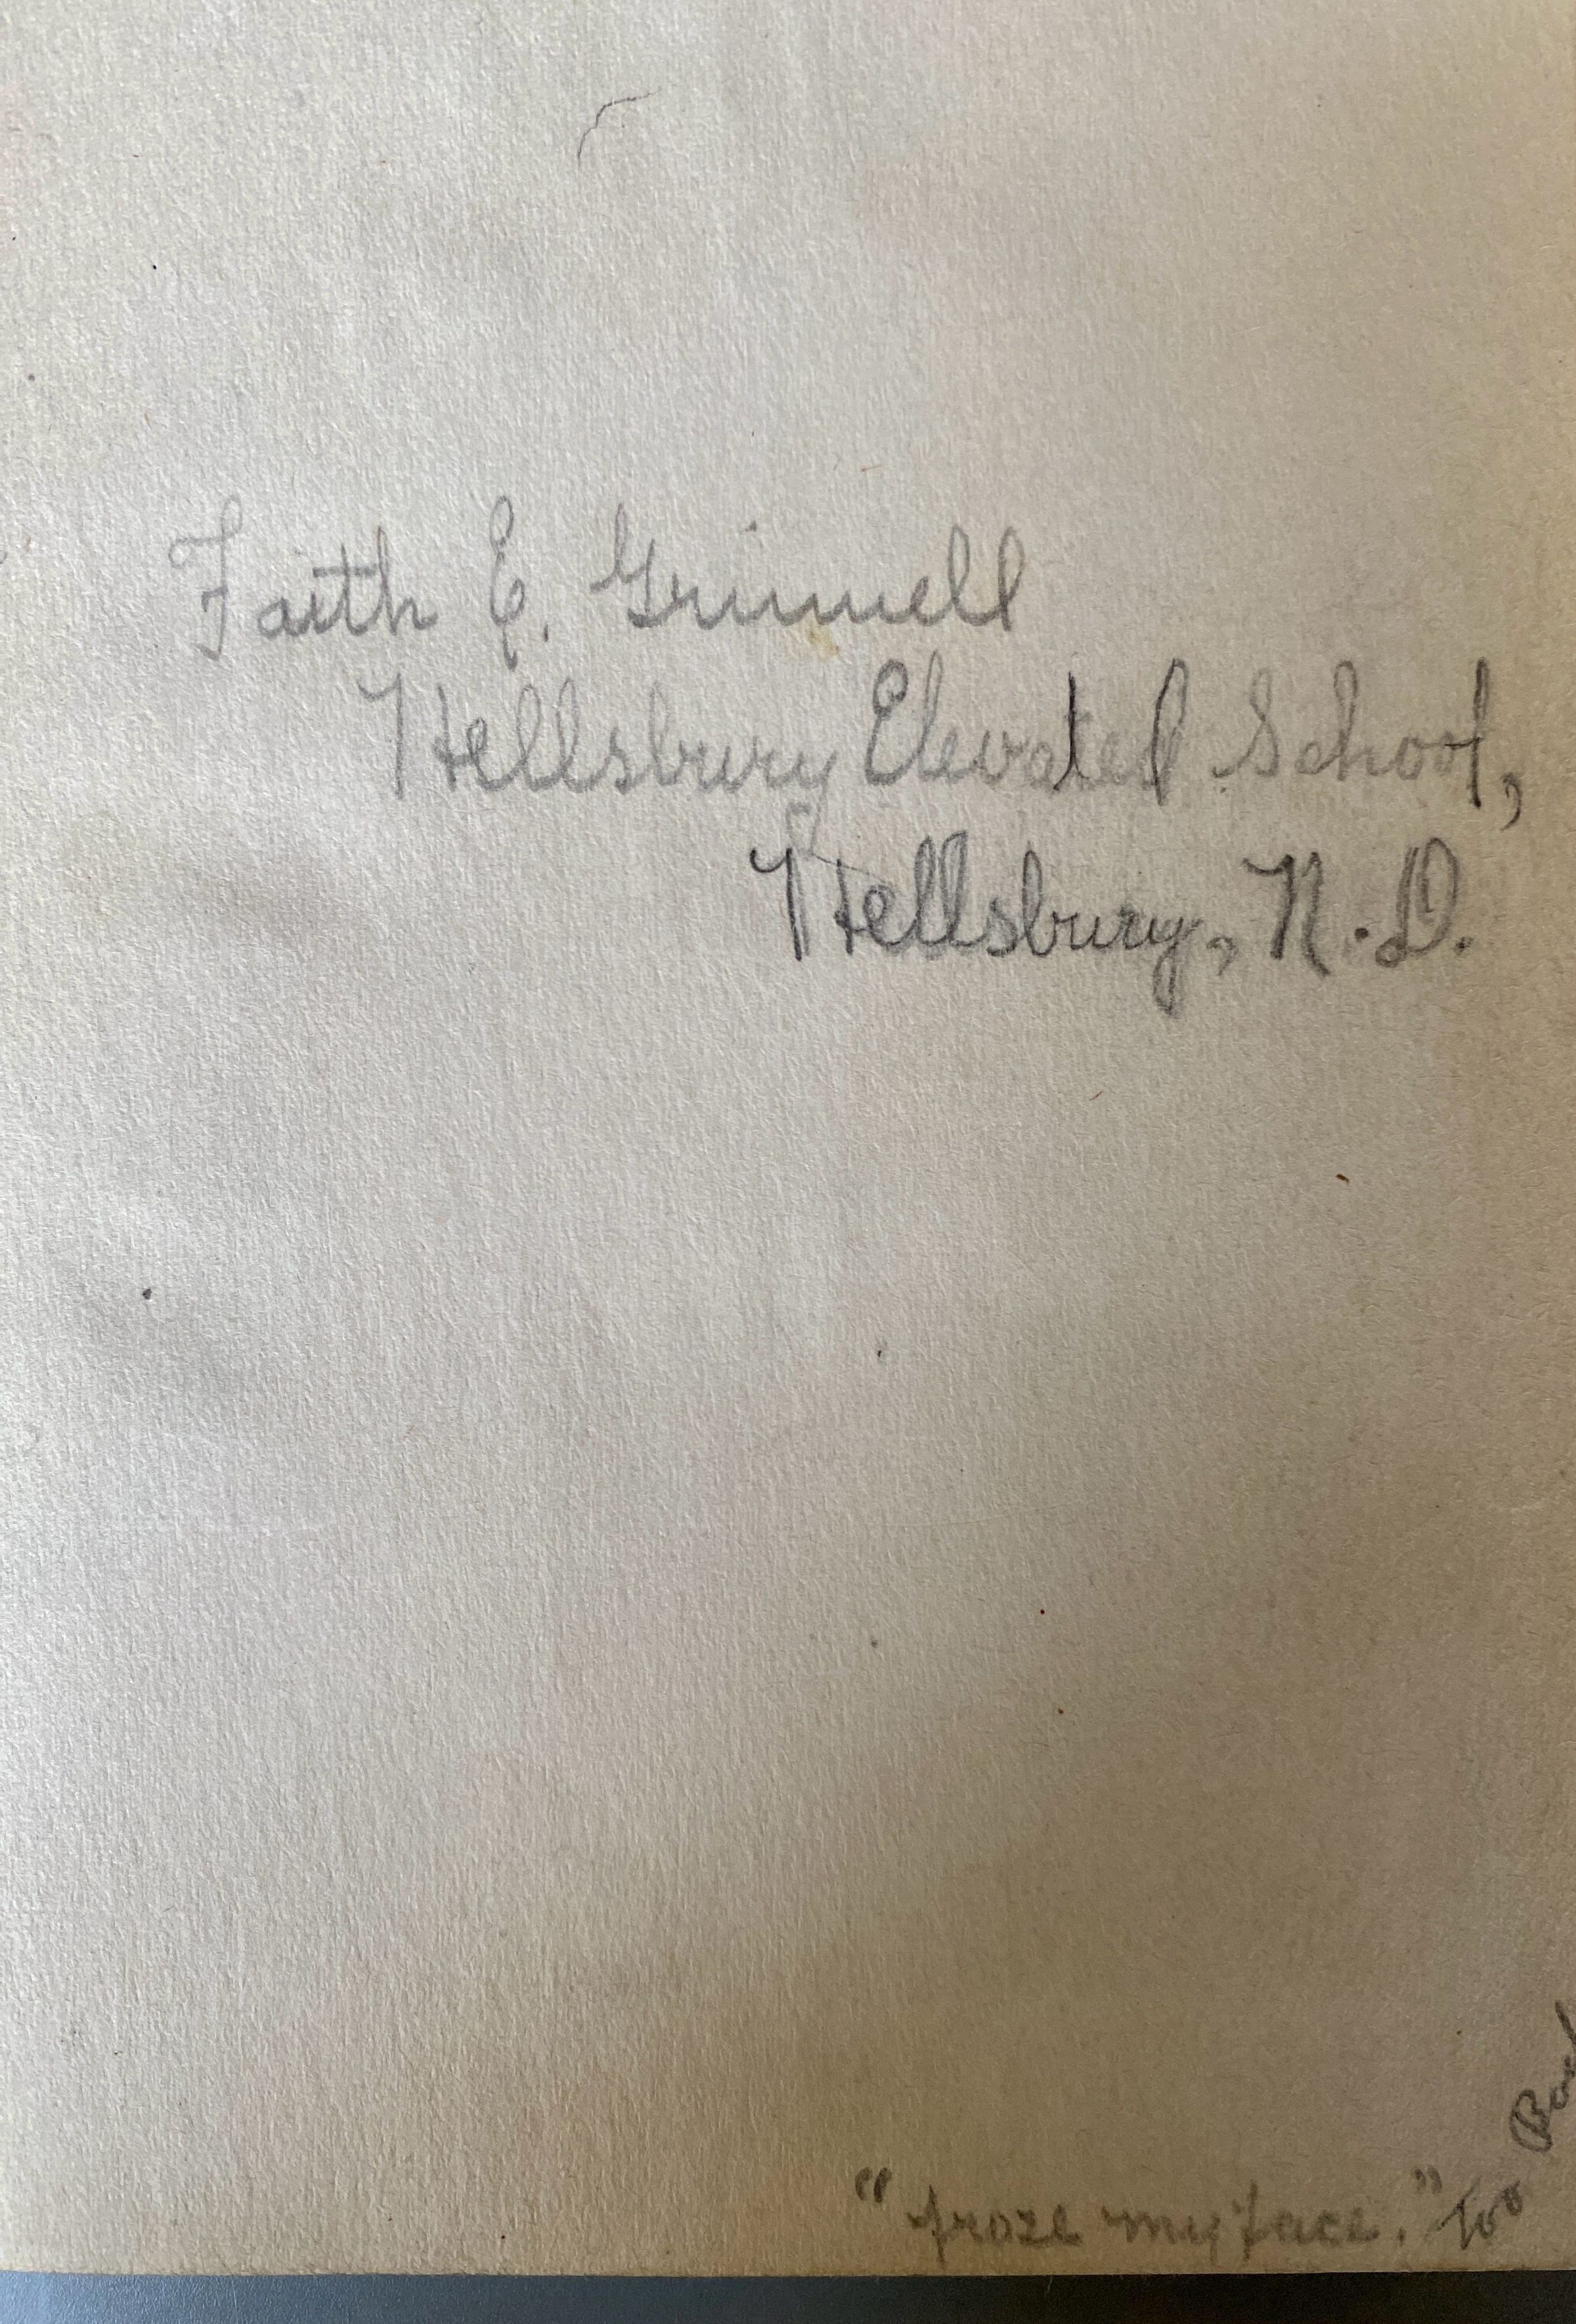 Faith E. Grinnell
Hellsbury Elevated School,
Hellsbury, N.D.
"froze my face." Too